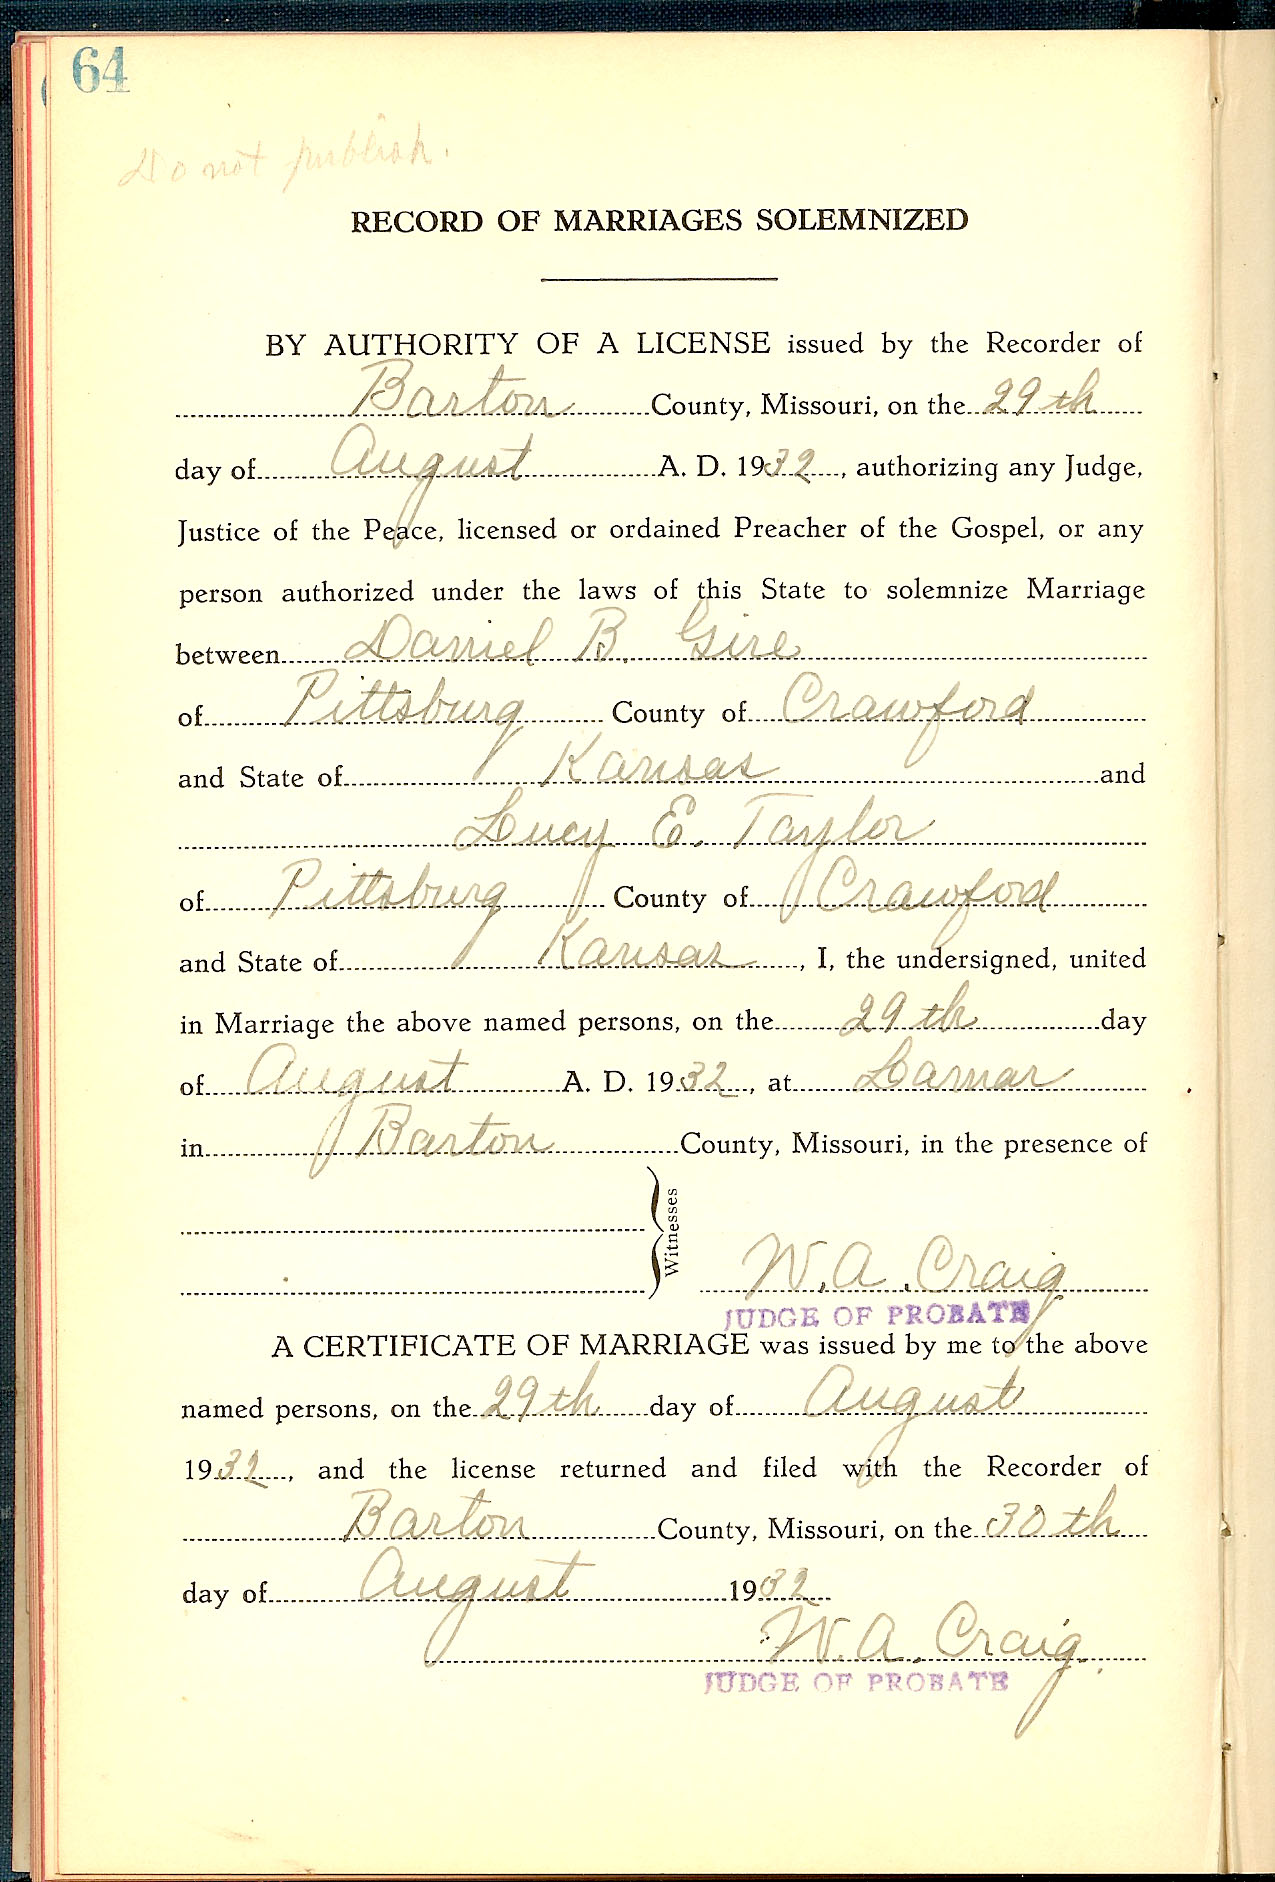 64
Do not publish.
RECORD OF MARRIAGES SOLEMNIZED
BY AUTHORITY OF A LICENSE issued by the Recorder of
Barton County, Missouri, on the 29th
day of August A. D. 1932, authorizing any Judge,
Justice of the Peace, licensed or ordained Preacher of the Gospel, or any
person authorized under the laws of this State to solemnize Marriage
between Daniel B. Gire
of Pittsburg County of Crawford
and State of Kansas and
Lucy E. Taylor
of Pittsburg County of Crawford
and State of Kansas, I, the undersigned, united
in Marriage the above named persons, on the 29th day
of August A. D. 1932, at Lamar
in Barton County, Missouri, in the presence of
Witnesses
W. A. Craig
JUDGE OF PROBATE
A CERTIFICATE OF MARRIAGE was issued by me to the above
named persons, on the 29th day of August
1932, and the license returned and filed with the Recorder of
Barton County, Missouri, on the 30th
day of August 1932
W. A. Craig.
JUDGE OF PROBATE